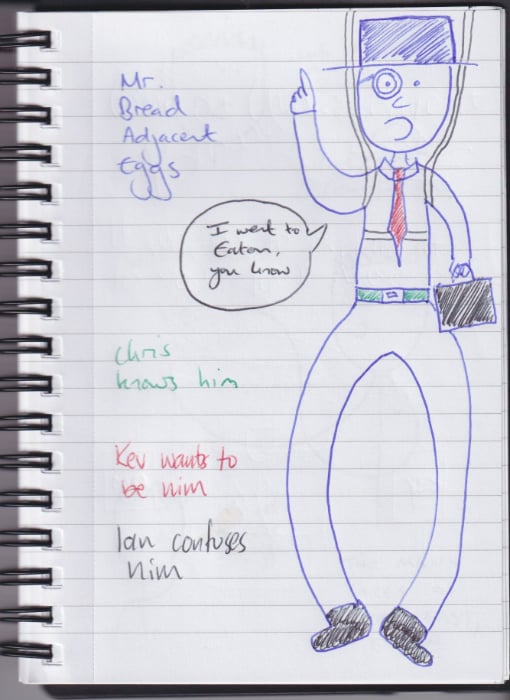 Mr.
Bread
Adjacent
Eggs
I went to
Eaton,
you know
Chris
knows him
Kev wants to
be him
Ian confuses
him